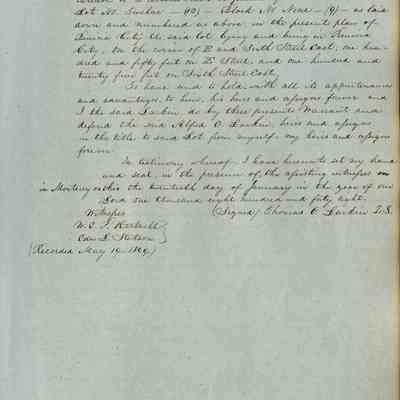 Lot No. Twelve – (12) – Block No Nine – (9) – as laid
down and numbered as above, in the present plan of
Benicia City the said lot lying and being in Benicia
City, on the corner of D and Sixth Street East, one hun-
dred and fifty feet on "D" Street, and one hundred and
twenty five feet on Sixth Street East,
To have and to hold with all its appurtenances
and advantages, to him, his heirs and assigns forever and
I the said Larkin do by these presents Warrant and
defend the said Alfred O. Larkin, heirs and assigns
in the title to said Lot from myself, my heirs and assigns
forever.
In testimony whereof, I have hereunto set my hand
and seal, in the presence of the assisting witness on
in Monterey this the twentieth day of January in the year of our
Lord one thousand eight hundred and forty eight.
Witness (Signed) Thomas O Larkin L.S.
W. S. J.
Edw. L. Stetson
(Recorded May 19-1849)